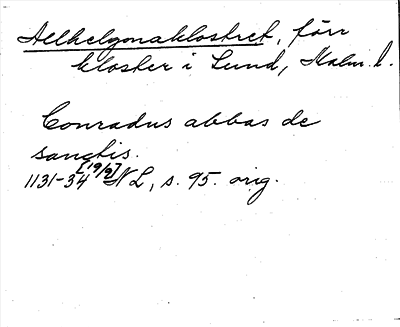 Allhelgonaklostret, förr
kloster i Lund, Malm. l.
Conradus abbas de
sanctis.
1131-34 [19/9] NL, s. 95. orig.